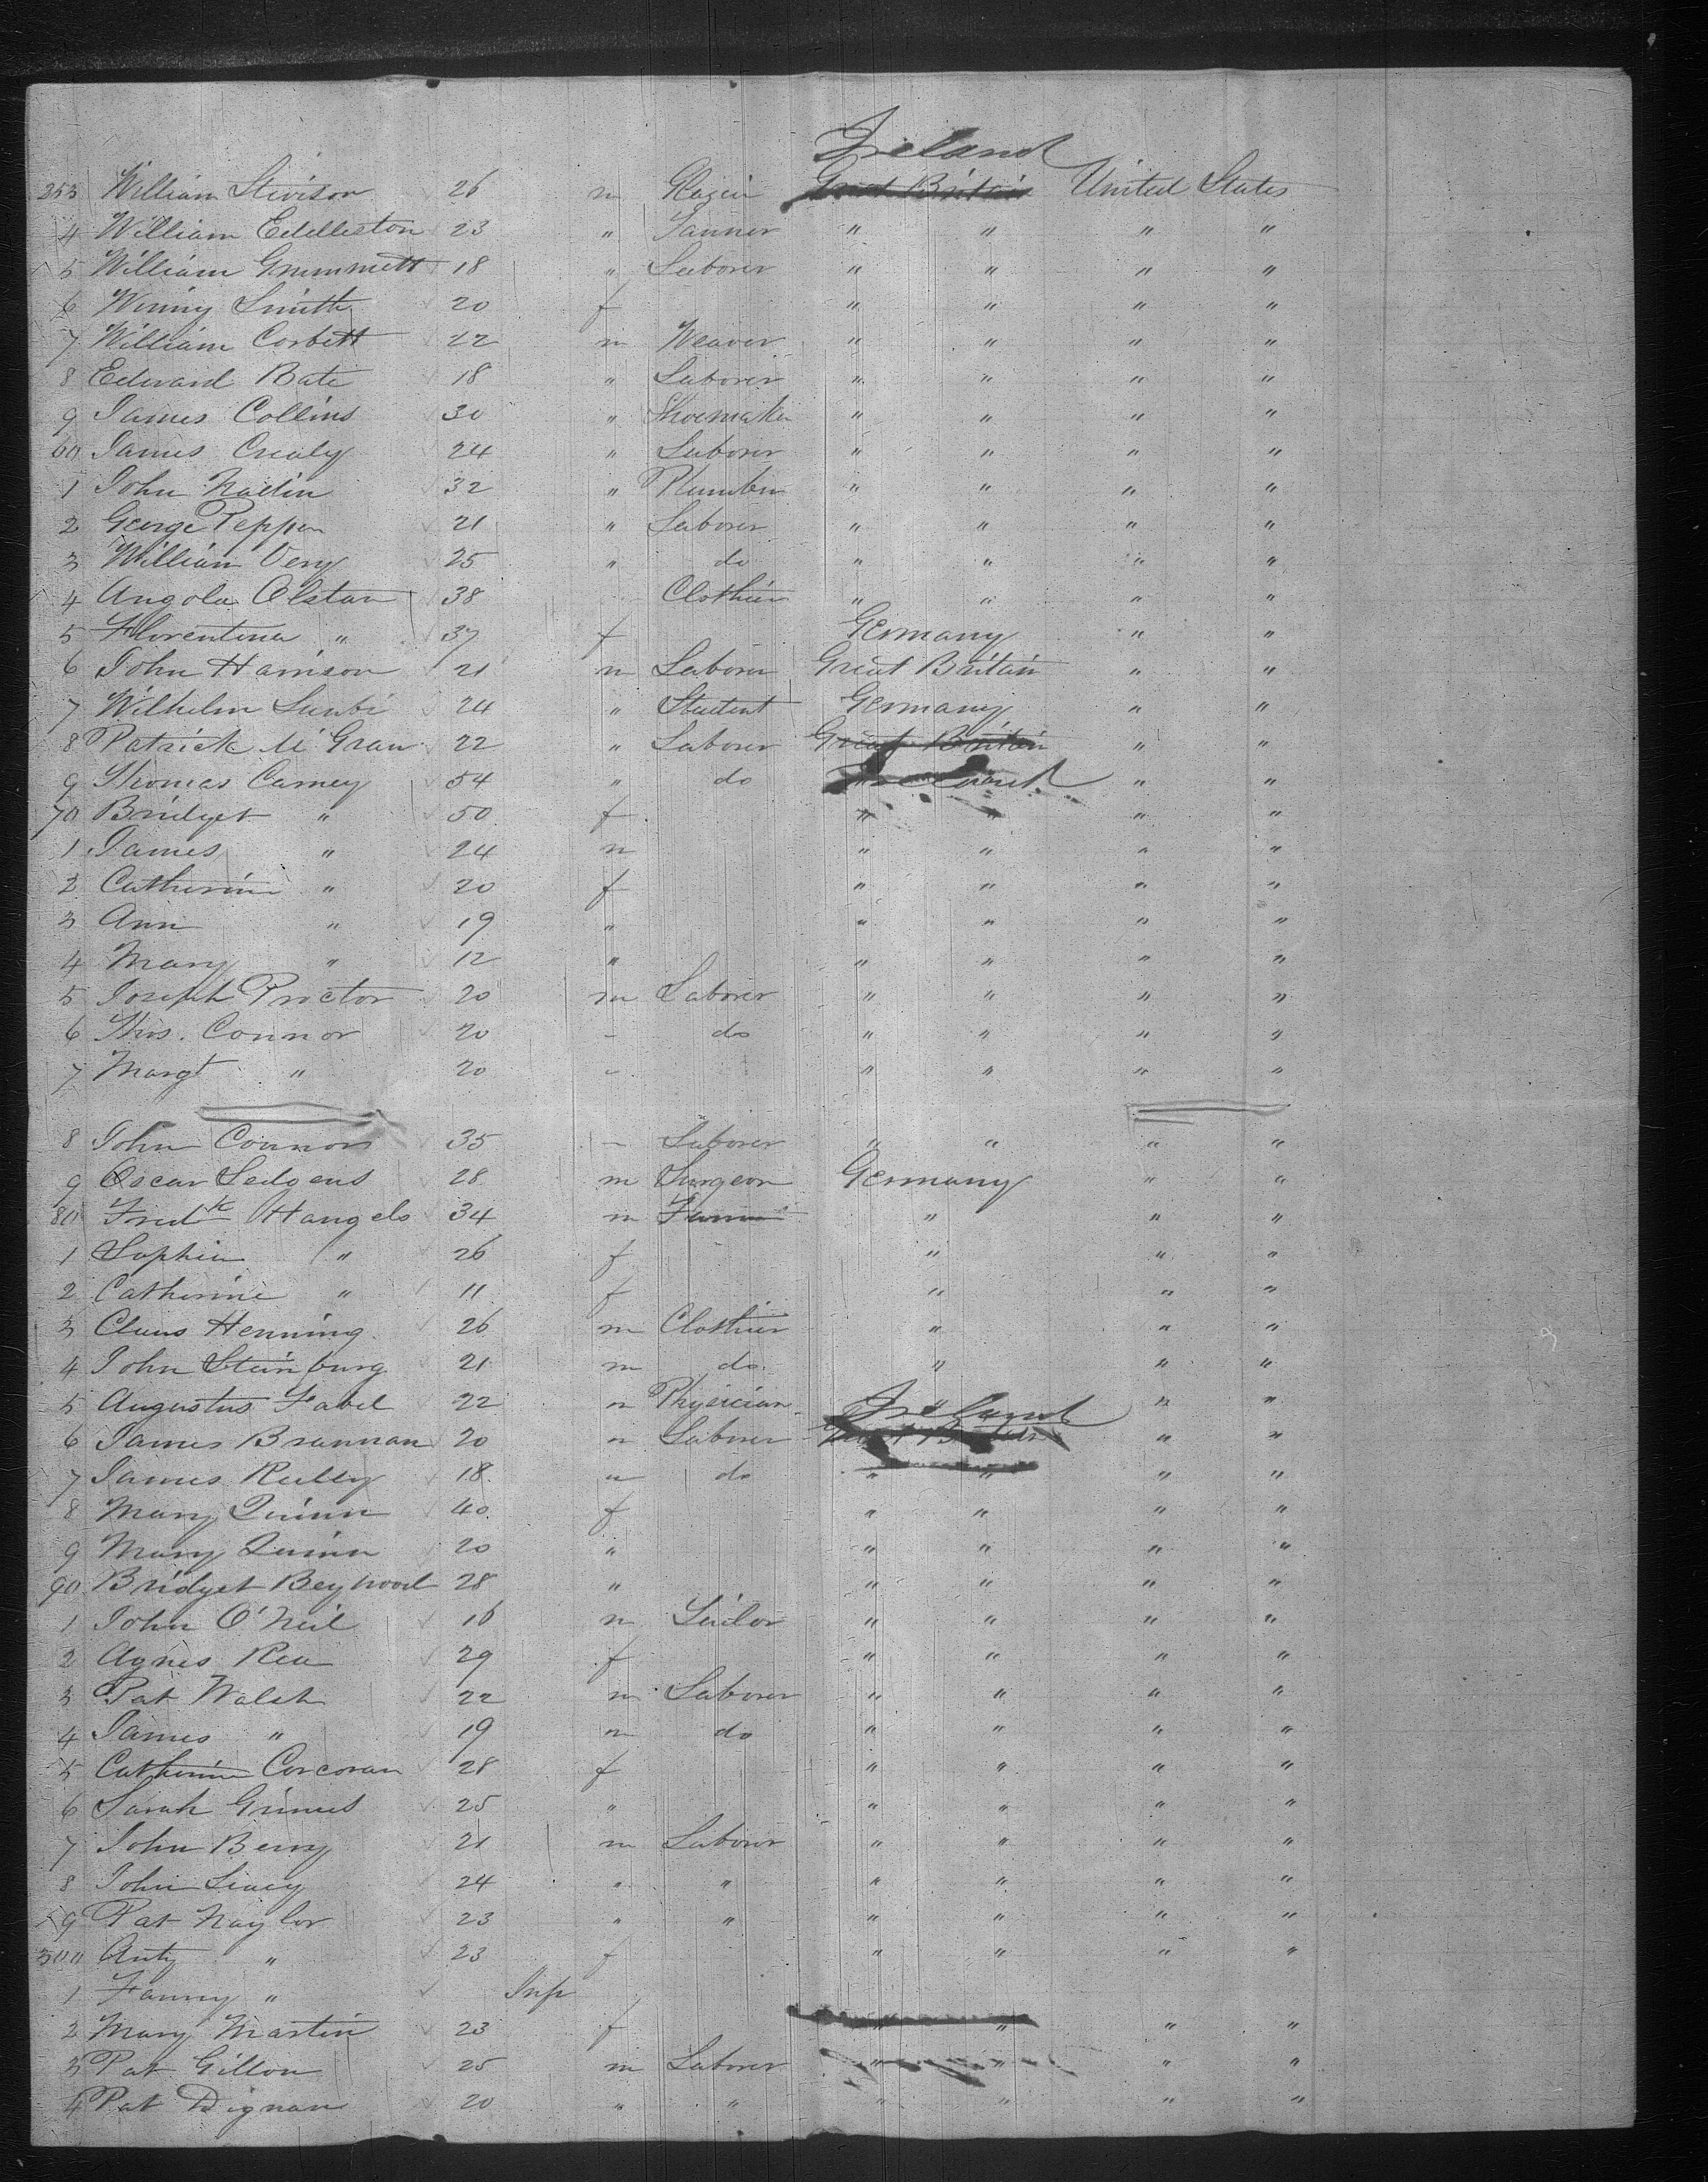 Ireland
253 William Stivison 26 m Glazier Great Britain United States
4 William Eddleston 23 " Tanner " " " "
5 William Grummett 18 " Laborer " " " "
6 Winny Smith 20 f " " " "
7 William Corbett 22 m Weaver " " " "
8 Edward Bate 18 " Laborer " " " "
9 James Collins 30 " Shoemaker " " " "
60 James Crealy 24 " Laborer " " " "
1 John Nallin 32 " Plumber " " " "
2 George Pepper 21 " Laborer " " " "
3 William Very 25 " do " " " "
4 Angola Olstan 38 Clothier " " " "
5 Florentina " 37 f Germany " "
6 John Harrison 21 m Laborer Great Britain " "
7 Wilhelm 24 " Student Germany " "
8 Patrick Mc Gran 22 " Laborer Great Britain " "
9 Thomas Carney 54 " do Ireland " "
70 Bridget " 50 f " " " "
1 James " 24 m " " " "
2 Catherine " 20 f " " " "
3 Ann " 19 " " " " "
4 Mary " 12 " " " " "
5 Joseph Proctor 20 m Laborer " " " "
6 Thos. Connor 20 - do " " " "
7 Margt " 20 - " " " "
8 John Connors 35 - Laborer " " " "
9 Oscar Sedgens 28 m Surgeon Germany " "
80 Fredk Hangels 34 m " " "
1 Sophia " 26 f " " "
2 Catherine " 11 f " " "
3 Claus Henning 26 m Clothier " " "
4 John Steinburg 21 m do " " "
5 Augustus Fabel 22 m Physician " " "
Ireland
6 James Brannan 20 m Laborer Great Britain " "
7 James Reilly 18 m do " " " "
8 Mary Quinn 40 f " " " "
9 Mary Quinn 20 " " " " "
90 Bridget Beywood 28 " " " " "
1 John O'Neil 16 m Sailor " " " "
2 Agnes Rea 29 f " " " "
3 Pat Walsh 22 m Laborer " " " "
4 James " 19 m do " " " "
5 Catherine Corcoran 28 f " " " "
6 Sarah Grimes 25 " " " " "
7 John Berry 21 m Laborer " " " "
8 John 24 " " " " " "
9 Pat Naylor 23 " " " " " "
300 Anty " 23 f " " " "
1 Fanny " Inf
2 Mary Martin 23 f " " " "
3 Pat Gillon 25 m Laborer " " " "
4 Pat Dignan 20 " " " " " "